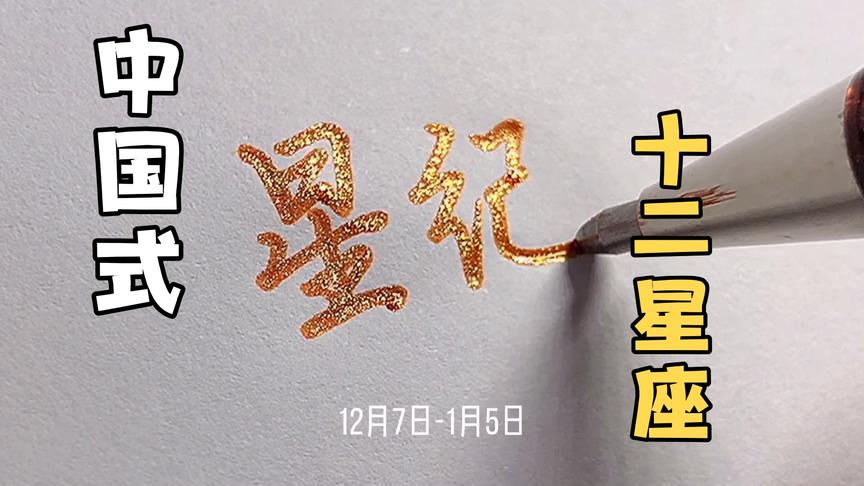 中国式
星纪
十二星座
12月7日-1月5日